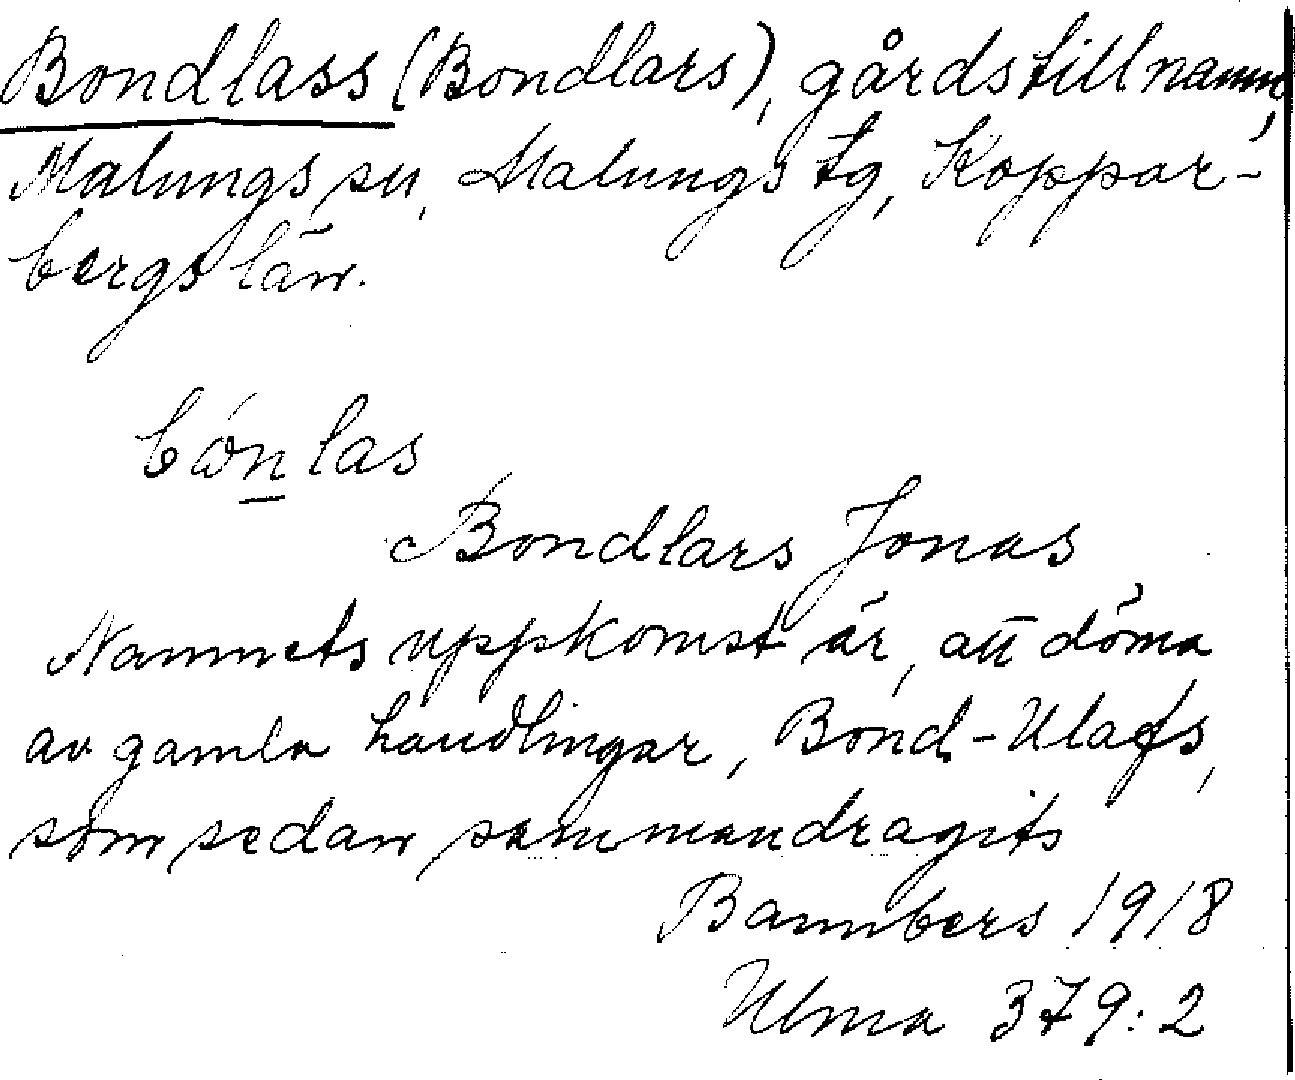 Bondlass (Bondlars), gårdstillnamn,
Malungs sn, Malungs tg, Koppar-
bergs län.
bón̲las
Bondlars Jonas
Namnets uppkomst är, att döma
av gamla handlingar, Bond-Olafs,
som sedan sammandragits
Bannbers 1918
Ulma 379:2